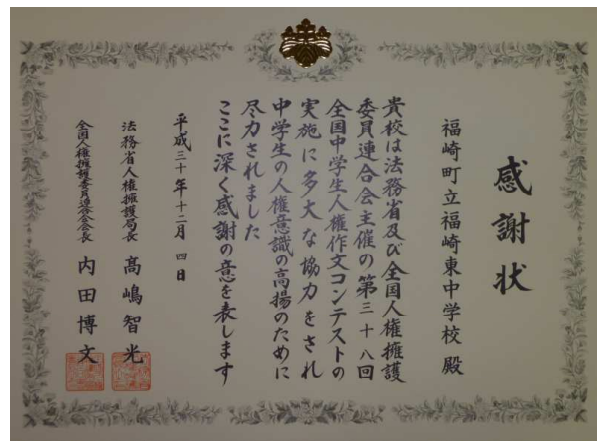 感謝状
福崎町立福崎東中学校 殿
貴校は法務省及び全国人権擁護
委員連合会主催の第三十八回
全国中学生人権作文コンテストの
実施に多大な協力をされ
中学生の人権意識の高揚のために
尽力されました
ここに深く感謝の意を表します
平成三十年十二月 四日
法務省人権擁護局長 高嶋智光
全国人権擁護委員連合会会長 内田博文